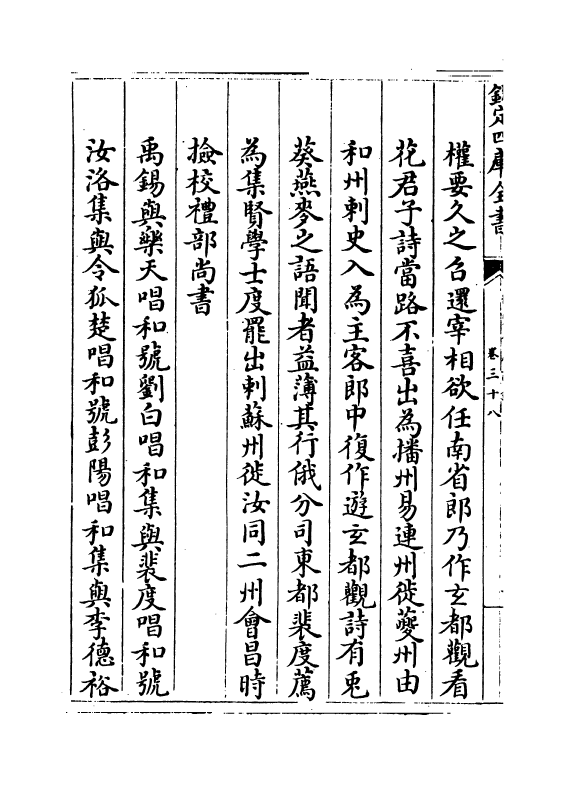 欽定四庫全書
卷三十八
權要久之召還宰相欲任南省郎乃作玄都觀看
花君子詩當路不喜出為播州易連州徙夔州由
和州刺史入為主客郎中復作遊玄都觀詩有兎
葵燕麥之語聞者益薄其行俄分司東都裴度薦
為集賢學士度罷出刺蘇州徙汝同二州會昌時
撿校禮部尚書
禹錫與樂天唱和號劉白唱和集與裴度唱和號
汝洛集與令狐楚唱和號彭陽唱和集與李德裕